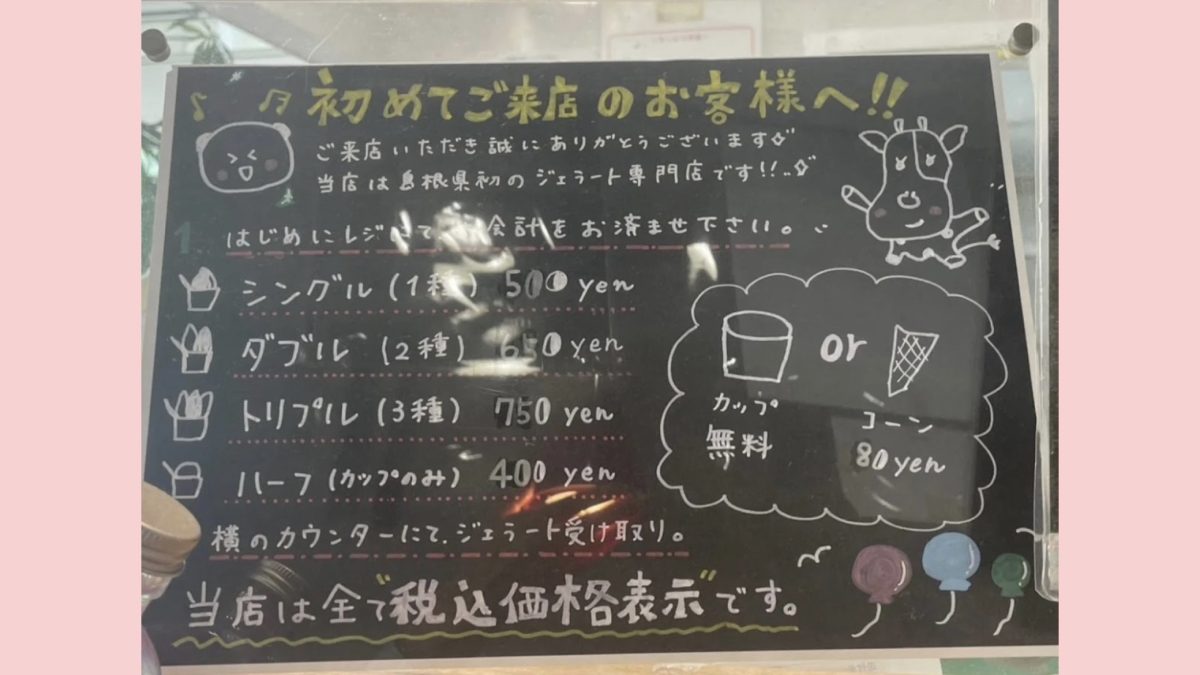 初めてご来店のお客様へ!!
ご来店いただき誠にありがとうございます
当店は島根県初のジェラート専門店です!!
1 はじめにレジにて お会計をお済ませ下さい。
シングル(1種) 500 yen
ダブル(2種) 650 yen
トリプル(3種) 750 yen
ハーフ(カップのみ) 400 yen
カップ
無料
or
コーン
80yen
横のカウンターにて、ジェラート受け取り。
当店は全て"税込価格表示"です。